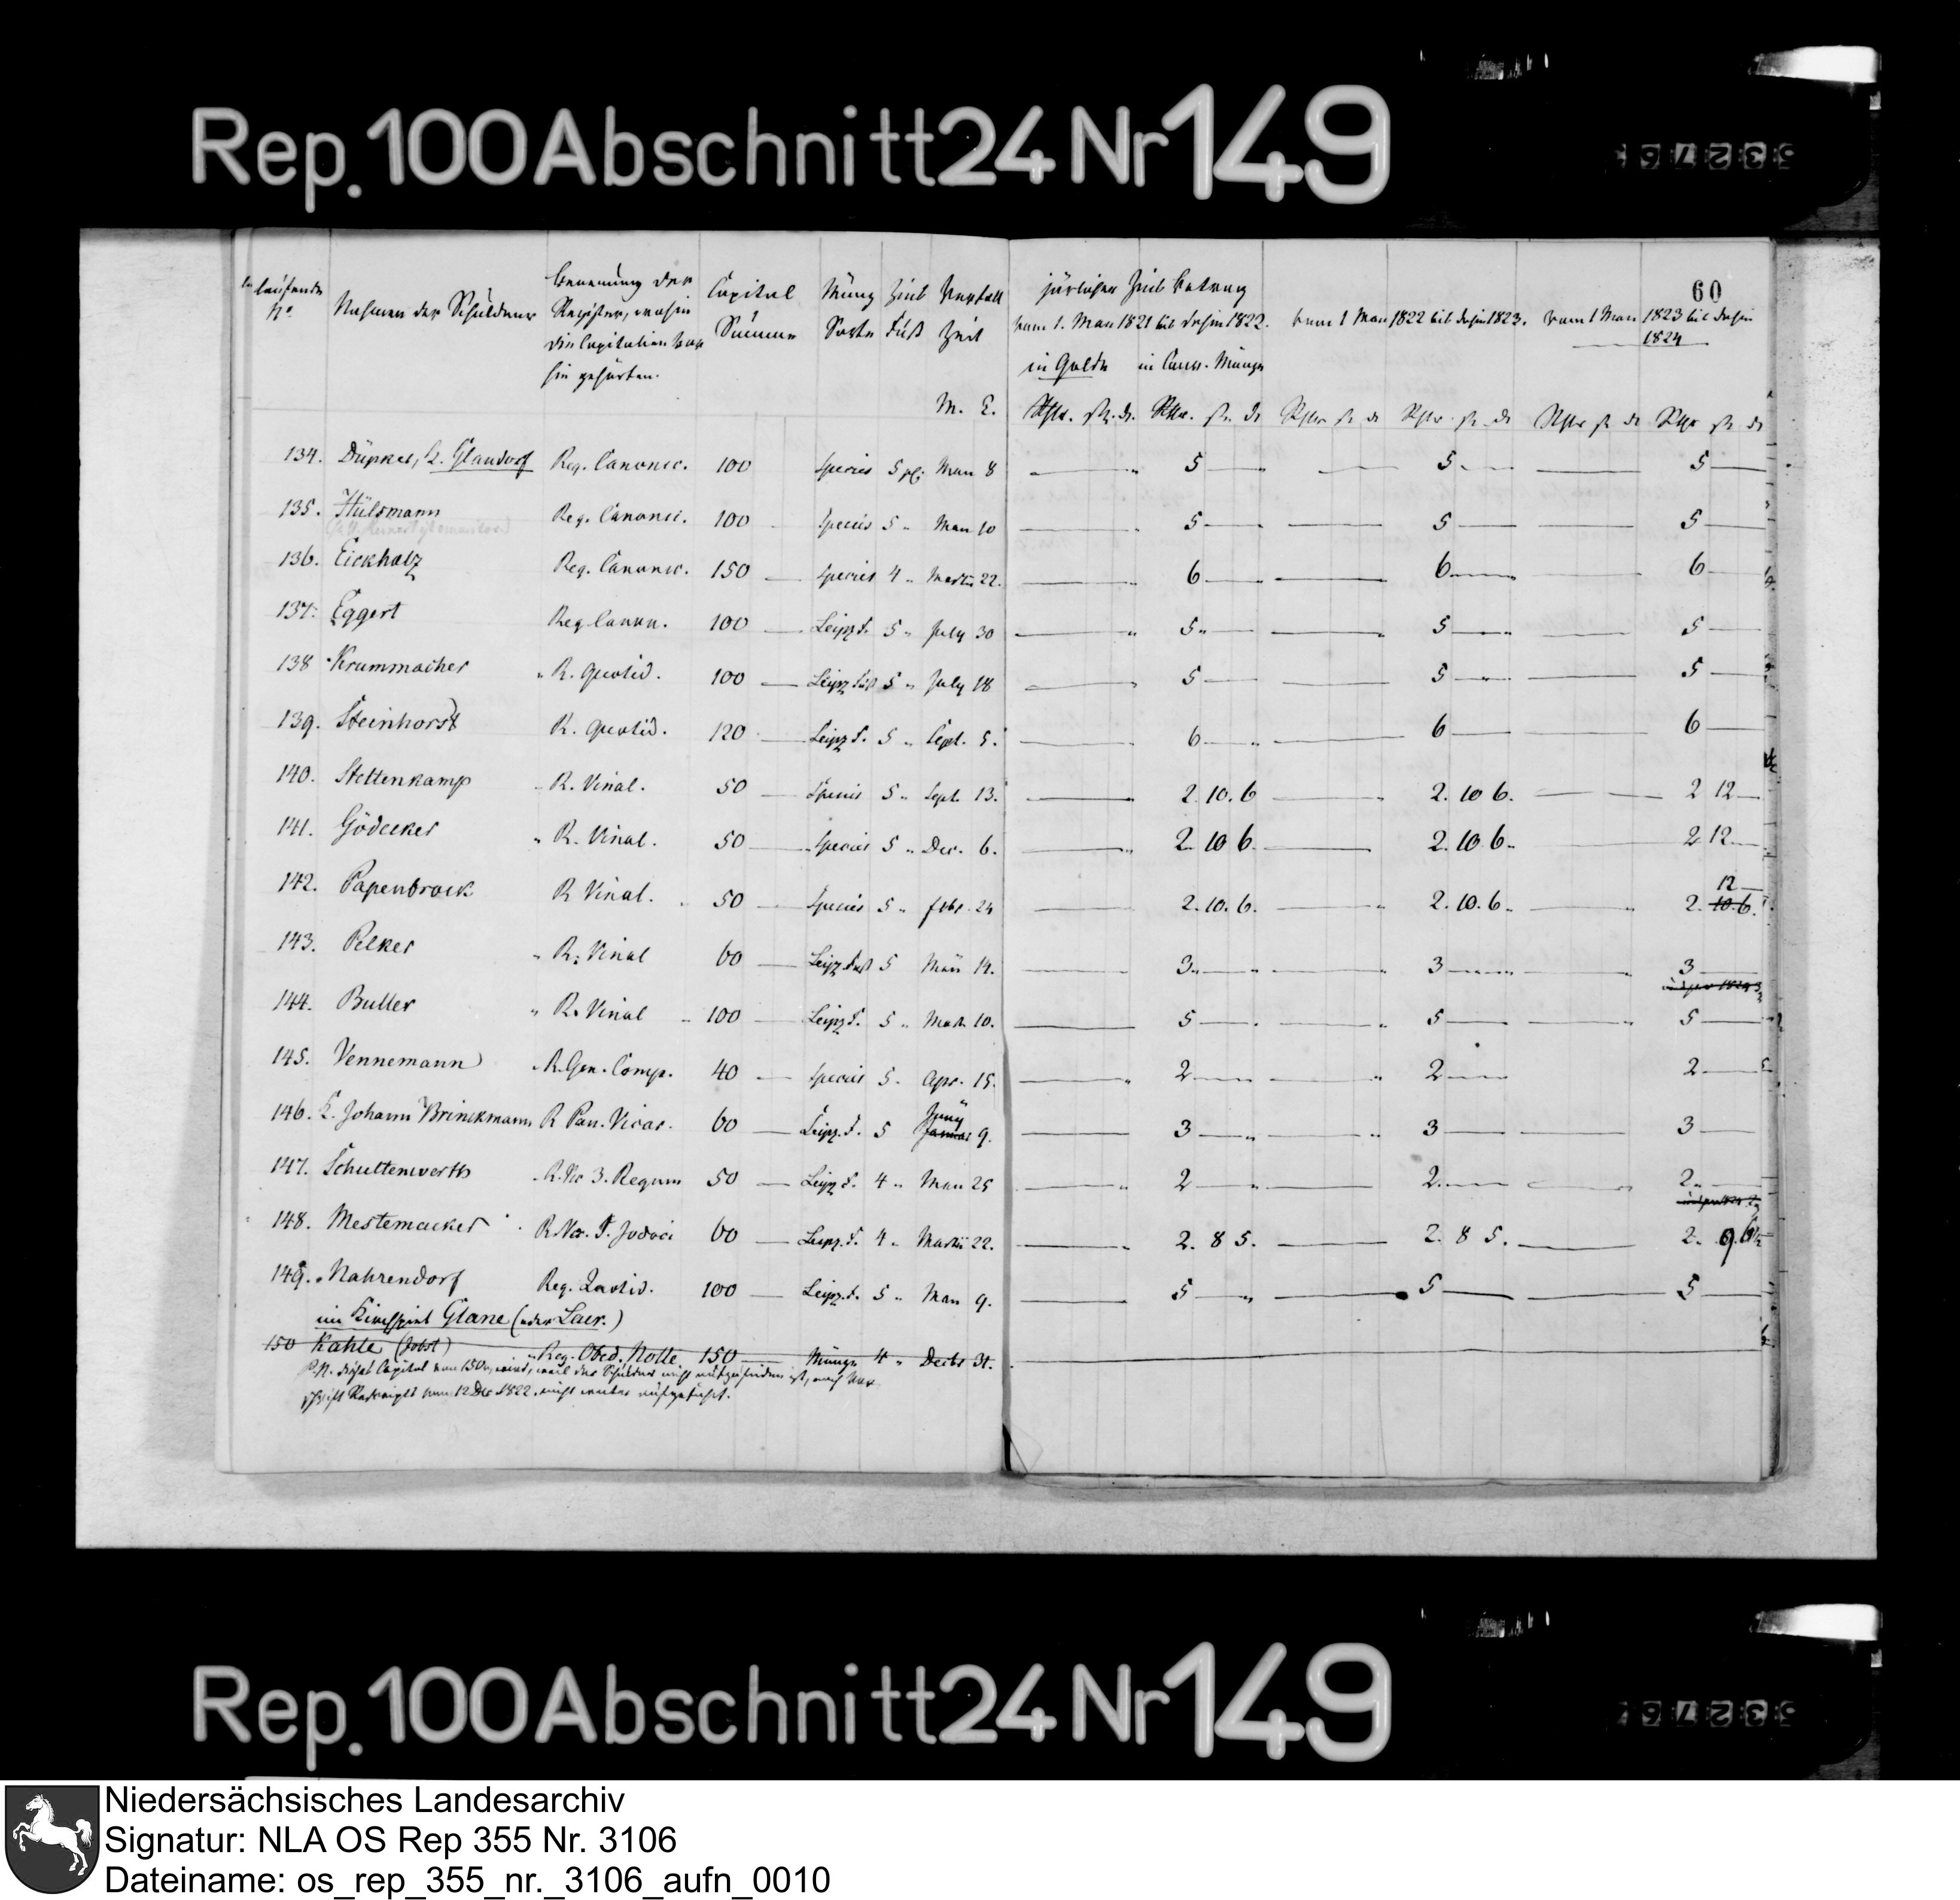 Rep. 100 Abschnitt 24 Nr 149
60
laufende Nahmen der Schuldner Benennung der Capital Münz Zins Verfall jährlicher Zins Betrag
No Register, wohin Summe Sorte Fuß Zeit vom 1. May 1821 bis dahin 1822. vom 1 May 1822 bis dahin 1823. vom 1 May 1823 bis dahin
die Capitalien 1824
hin gehörten. in Golde in Conv. Münze
M.
134. Düpker, Glandorf Reg. Canonic. 100 Species 5 May 8 5 5 5
135. Hülsmann Reg. Canonic. 100 Species 5 May 10 5 5 5
136. Eickholz Reg. Canonic. 150 Species 4 Martii 22. 6 6 6
137. Eggert Reg Canon. 100 Leipz F. 5 July 30 5 5 5
138 Krummacher R. quotid. 100 Leipz Fuß 5 July 18 5 5 5
139. Steinhorst R. quotid. 120 Leipz F. 5 Sept. 5. 6 6 6
140. Stettenkamp R. Vinal. 50 Species 5 Sept. 13. 2. 10. 6 2. 10 6. 2 12
141. Gödecker R. Vinal. 50 Species 5 Dec. 6. 2. 10 6. 2. 10 6. 2 12
12
142. Papenbrock R Vinal. 50 Species 5 Febr. 24 2. 10. 6. 2. 10. 6. 2. 10. 6.
143. Pelker R. Vinal 60 Leipz Fuß 5 14. 3 3 3
144. Buller R. Vinal 100 Leipz F. 5 10. 5 5 5
145. Vennemann R. Gen. Comp. 40 Species 5. Apr. 15. 2 2 2
Juny
146. Johann Brinckmann R Pan. Vicar. 60 Leipz. F. 5 Januar 9. 3 3 3
147. Schultenwerth R. Vic 3. Regum 50 Leipz F. 4 May 25 2 2. 2.
148. Mestemacker R. Vic. S. Jodoci 60 Leipz. F. 4 Martii 22. 2. 8 5. 2. 8 5. 2. 9.
149. Nahrendorf Reg. Quotid. 100 Leipz. F. 5 May 9. 5 5 5
im Kirchspiel Glane (oder Laer.)
150 Kahle (Jobst) Reg. Obed. Nolte 150 Münze 4 Decbr 31.
N. dieses Capital von 150 wird, weil der Schuldner nicht aufzufinden ist, nach
Rescripts vom 12 Dec 1822. nicht weiter aufgeführt.
Rep. 100 Abschnitt 24 Nr 149
Niedersächsisches Landesarchiv
Signatur: NLA OS Rep 355 Nr. 3106
Dateiname: os_rep_355_nr._3106_aufn_0010